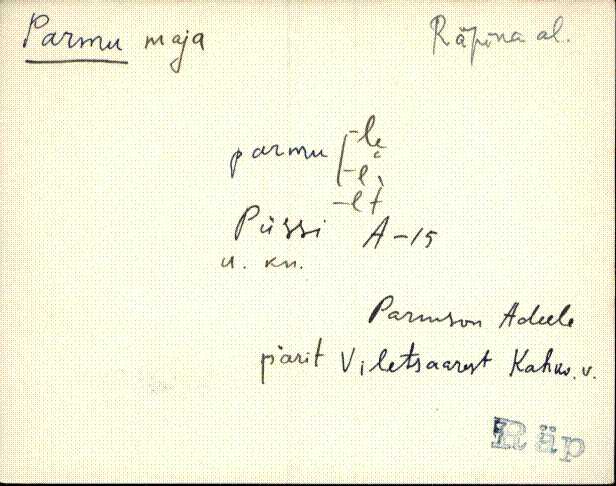 Parmu maja
Räpina al.
parmu -le
-l
-lt
Püssi A-15
u. kn.
Parmson Adeele
pärit Viletsaarest Kahkv. v.
Räp